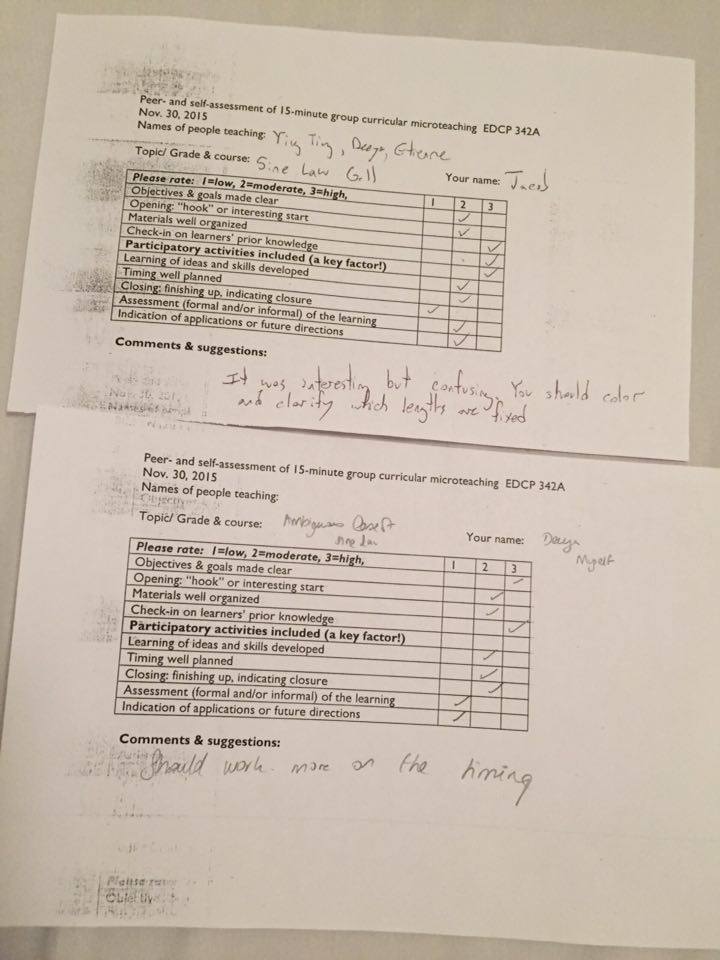 Peer- and self-assessment of 15-minute group curricular microteaching EDCP 342A
Nov. 30, 2015
Names of people teaching: Ying Ting, Deeya, Etienne
Topic/ Grade & course: Sine Law G.11 Your name: Jacob
Please rate: 1=low, 2=moderate, 3=high, 1 2 3
Objectives & goals made clear ✓
Opening: "hook" or interesting start ✓
Materials well organized
Check-in on learners' prior knowledge ✓
Participatory activities included (a key factor!) ✓
Learning of ideas and skills developed ✓
Timing well planned ✓
Closing: finishing up, indicating closure ✓
Assessment (formal and/or informal) of the learning ✓
Indication of applications or future directions ✓ ✓
Comments & suggestions:
It was interesting but confusing. You should color
and clarify which lengths are fixed
Peer- and self-assessment of 15-minute group curricular microteaching EDCP 342A
Nov. 30, 2015
Names of people teaching:
Topic/ Grade & course: Ambiguous Case of Your name: Deeya
sine law Myself
Please rate: 1=low, 2=moderate, 3=high, 1 2 3
Objectives & goals made clear ✓
Opening: "hook" or interesting start ✓
Materials well organized ✓
Check-in on learners' prior knowledge
Participatory activities included (a key factor!) ✓
Learning of ideas and skills developed ✓
Timing well planned ✓
Closing: finishing up, indicating closure ✓
Assessment (formal and/or informal) of the learning ✓
Indication of applications or future directions ✓
Comments & suggestions:
Should work more on the timing
Please rate
Objectiv